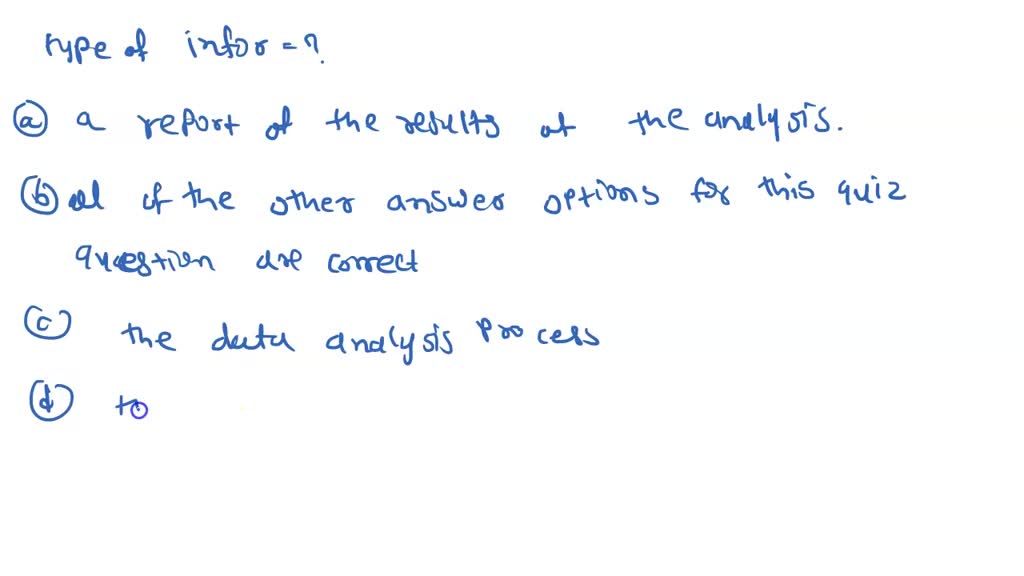 type of infor = ?
(a) a report of the results of the analysis.
(b) all of the other answer options for this quiz
question are correct
(c) the data analysis process
(d) t